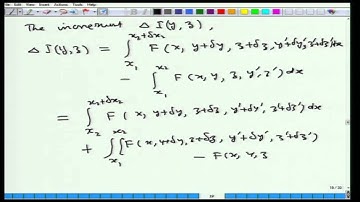 The increment Δ I(y, z),
Δ I(y,z) = ∫_{x₁}^{x₂+δx₂} F(x, y+δy, z+δz, y'+δy', z'+δz')dx
− ∫_{x₁}^{x₂} F(x, y, z, y', z')dx
= ∫_{x₂}^{x₂+δx₂} F(x, y+δy, z+δz, y'+δy', z'+δz')dx
+ ∫_{x₁}^{x₂} [F(x, y+δy, z+δz, y'+δy', z'+δz')
− F(x, y, z